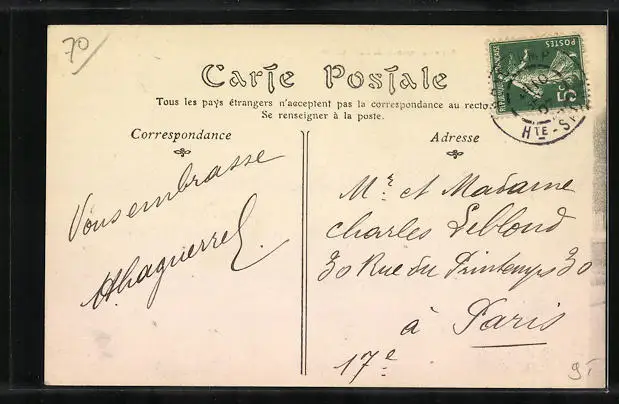 70
Carte Postale
Tous les pays étrangers n'acceptent pas la correspondance au recto.
Se renseigner à la poste.
Correspondance
Adresse
POSTES
5
Hᵀᴱ-SA
Vous embrasse
Mʳ. et Madame
Charles Leblond
30 Rue du Printemps 30
à Paris
17ᵉ